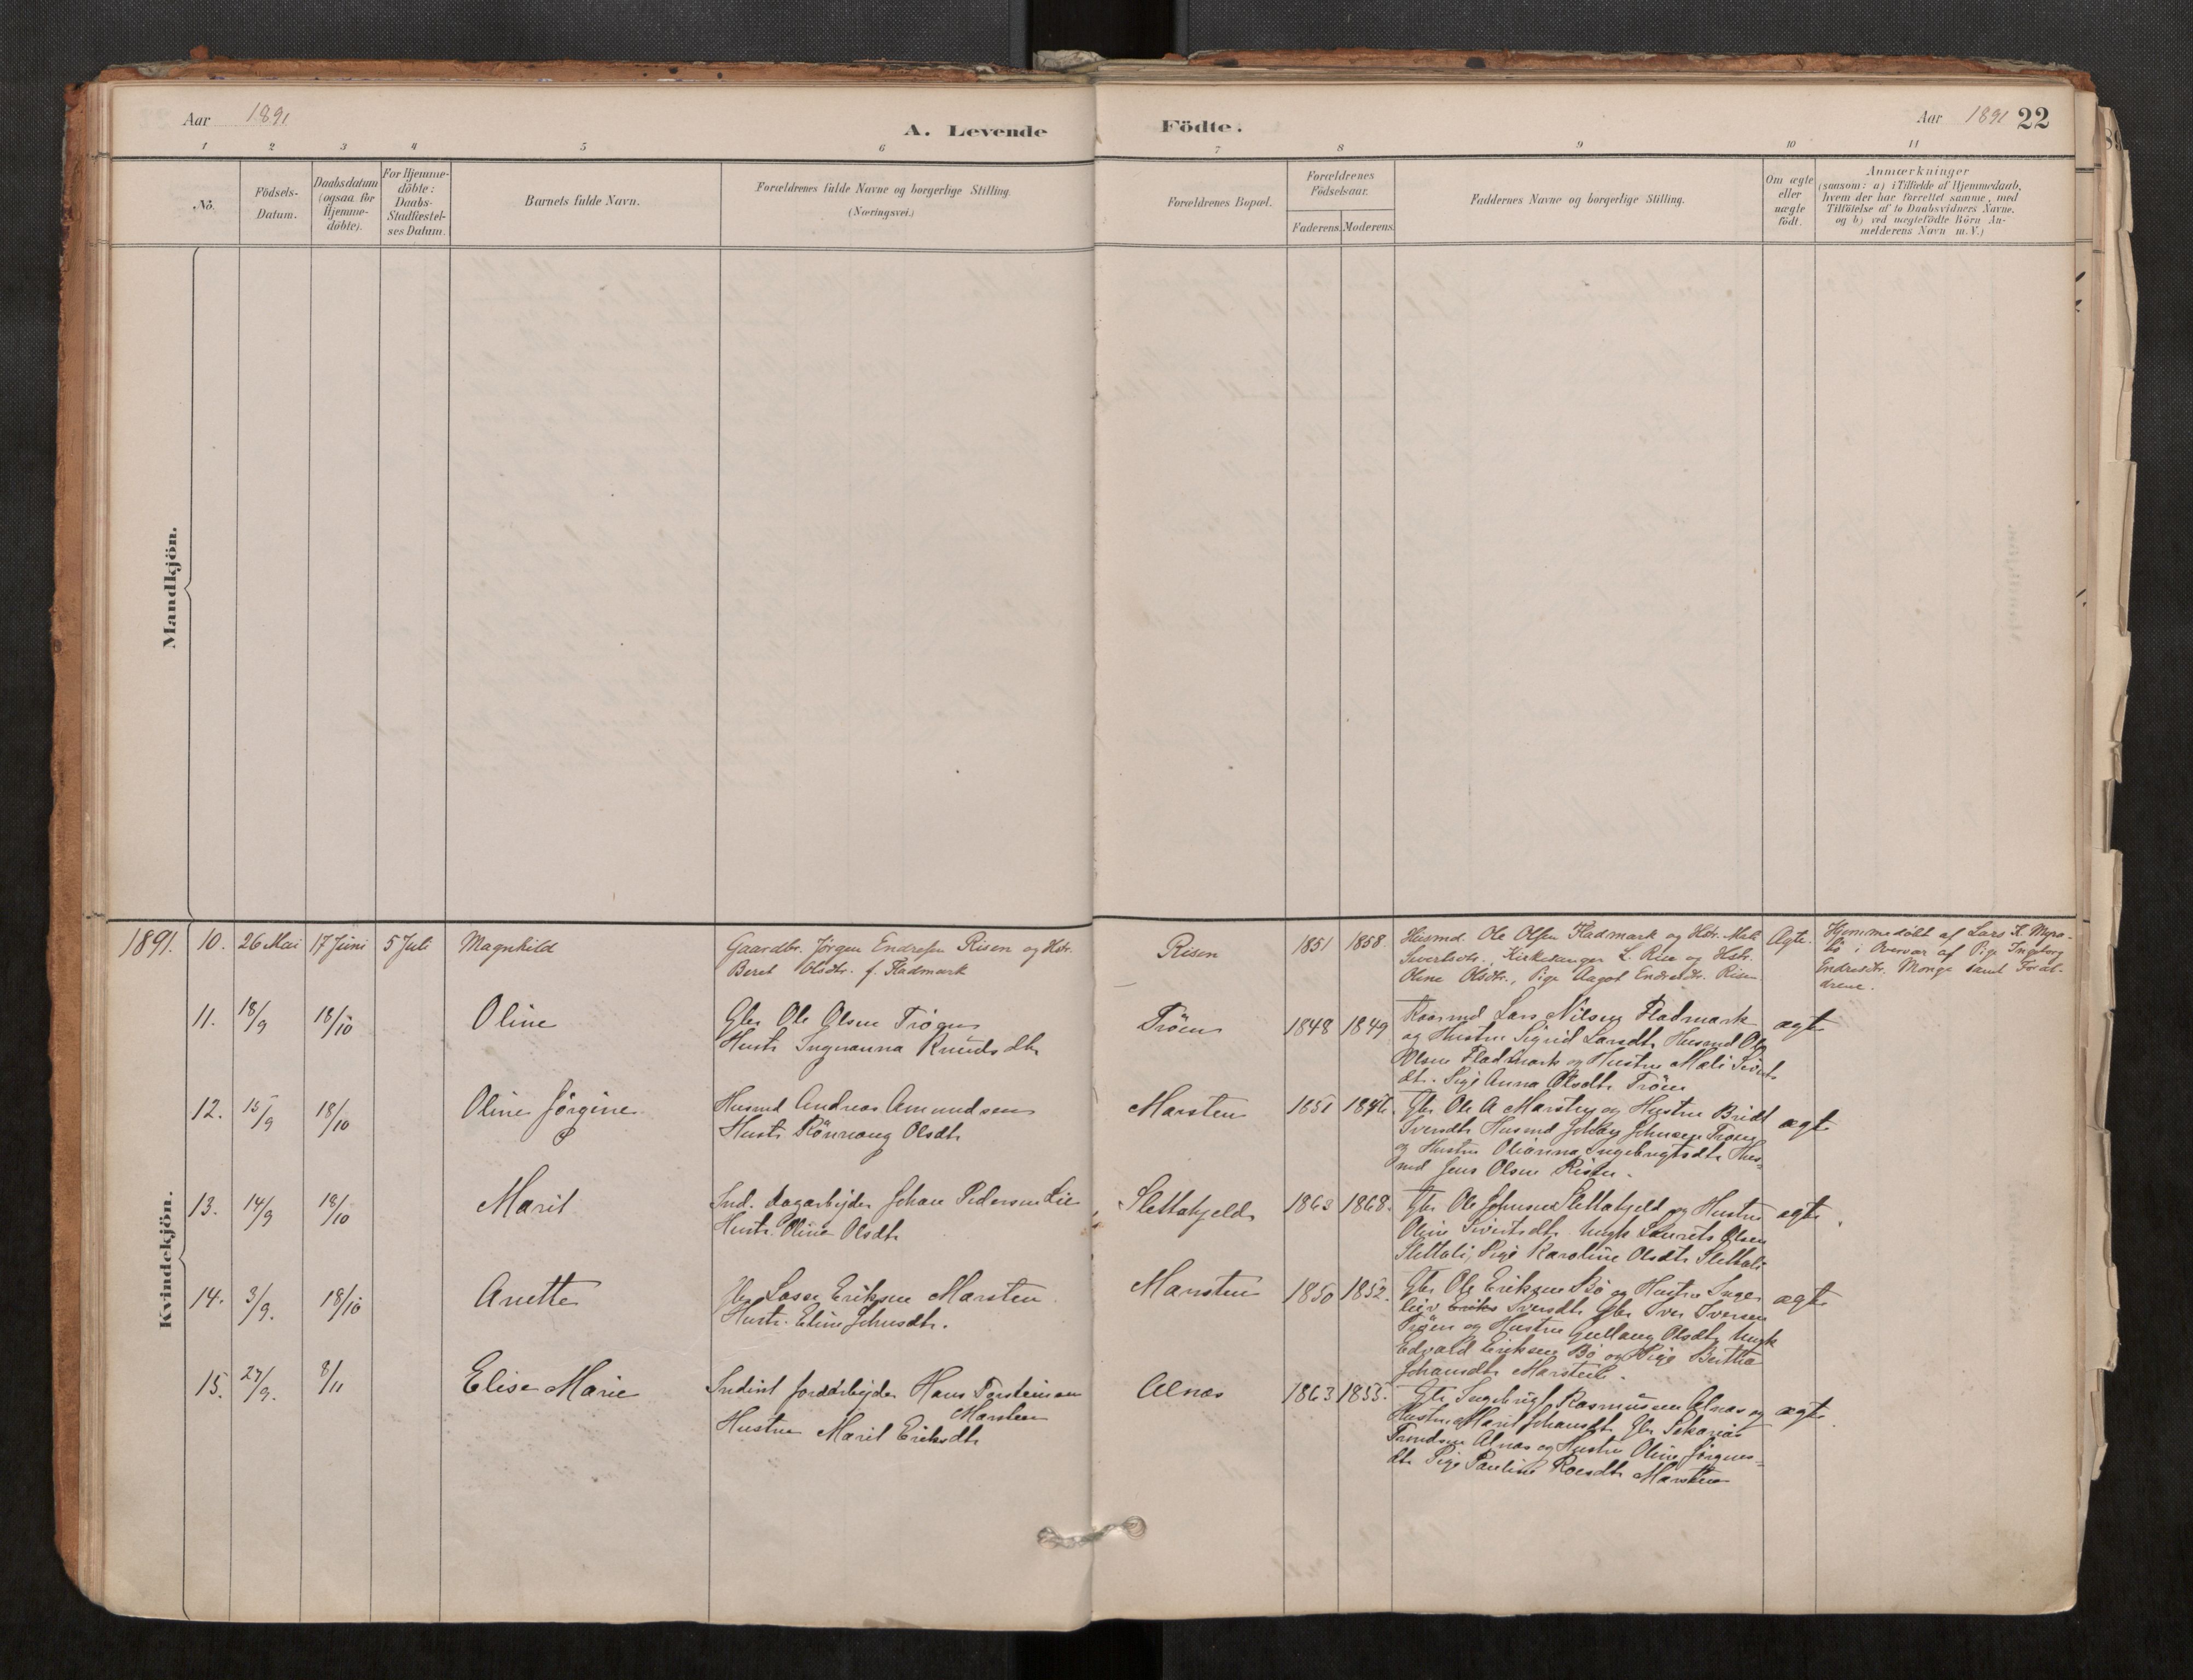 Aar 1891
A. Levende
Födte.
Aar 1891 22
1 2 3 4 5 6 7 8 9 10 11
No.
Födsels-
Datum.
Daabsdatum
(ogsaa for
Hjemme-
döbte).
For Hjemme-
döbte:
Daabs-
Stadfæstel-
ses Datum.
Barnets fulde Navn.
Forældrenes fulde Navne og borgerlige Stilling.
(Næringsvei.)
Forældrenes Bopæl.
Forældrenes
Födselsaar.
Faderens. Moderens.
Faddernes Navne og borgerlige Stilling.
Om ægte
eller
uægte
födt.
Anmærkninger
(saasom: a) i Tilfælde af Hjemmedaab,
hvem der har forrettet samme, med
Tilföielse af to Daabsvidners Navne,
og b) ved uægtefödte Börn An-
melderens Navn m.V.)
Mandkjön.
Kvindekjön.
1891. 10. 26 Mai 17 Juni 5 Juli Magnhild
Gaardbr. Jørgen Endresen Risen og Hstr.
Beret Olsdtr. f. Fladmark
Risen 1851 1858.
Husmd. Ole Olsen Fladmark og Hstr. Mali
Sivertsdtr., Kirkesanger L. Rise og Hstr.
Oline Olsdtr., Pige Aagot Endresdtr. Risen
Ægte.
Hjemmedöbt af Lars K. Myra-
bö i Overvær af Pige Ingeborg
Endresdtr. Monge samt Foræl-
drene.
11. 18/9 18/10 Oline
Gbr Ole Olsen Trøen
Hustr Ingeranna Knudsdtr
Trøen 1848 1849
Husmd Lars Nilsen Fladmark
og Hustru Sigrid Larsdtr Husmd Ole
Olsen Fladmark og Hustru Mali Sivert
dtr. Pige Anna Olsdtr Trøen
ægte
12. 15/9 18/10 Oline Jørgine
Husmd Andreas Amundsen
Hustr Rønnaug Olsdtr
Marsten 1851 1846.
Gbr Ole A Marsten og Hustru Bridt
Iversdtr Husmd Johan Johnsen Trøen
og Hustru Olianna Ingebrigtsdtr Hus-
md Jens Olsen Risen.
ægte
13. 14/9 18/10 Marit
Ind. dagarbejder Johan Pedersen Lie
Hustr. Oline Olsdtr
Slettahjeld 1863 1868.
Gbr Ole Johnsen Slettahjeld og Hustru
Oline Sivertsdtr. Ungk Laurits Olsen
Slettali, Pige Karoline Olsdtr Slettali
ægte
14. 3/9. 18/10 Anette
Gbr Lasse Eriksen Marsten.
Hustr. Eline Johnsdtr.
Marsten 1850 1852.
Gbr Ole Eriksen Bø og Hustru Inge-
leiv Eriks Iversdtr Gbr Iver Iversen
Trøen og Hustru Gullaug Olsdtr Ungk
Edvald Eriksen Bø og Pige Bertha
Johansdtr Marstein.
ægte
15. 27/9. 8/11 Elise Marie
Indint jordarbejder Hans Torsteinsen
Marsten
Hustru Marit Eriksdtr
Alnæs 1863 1855.
Gbr Ingebrigt Rasmussen Alnæs og
Hustru Marit Johansdtr Gbr Sakarias
Trondsen Alnæs og Hustru Oline Jørgens-
dtr Pige Pauline Roesdtr Marsten
ægte